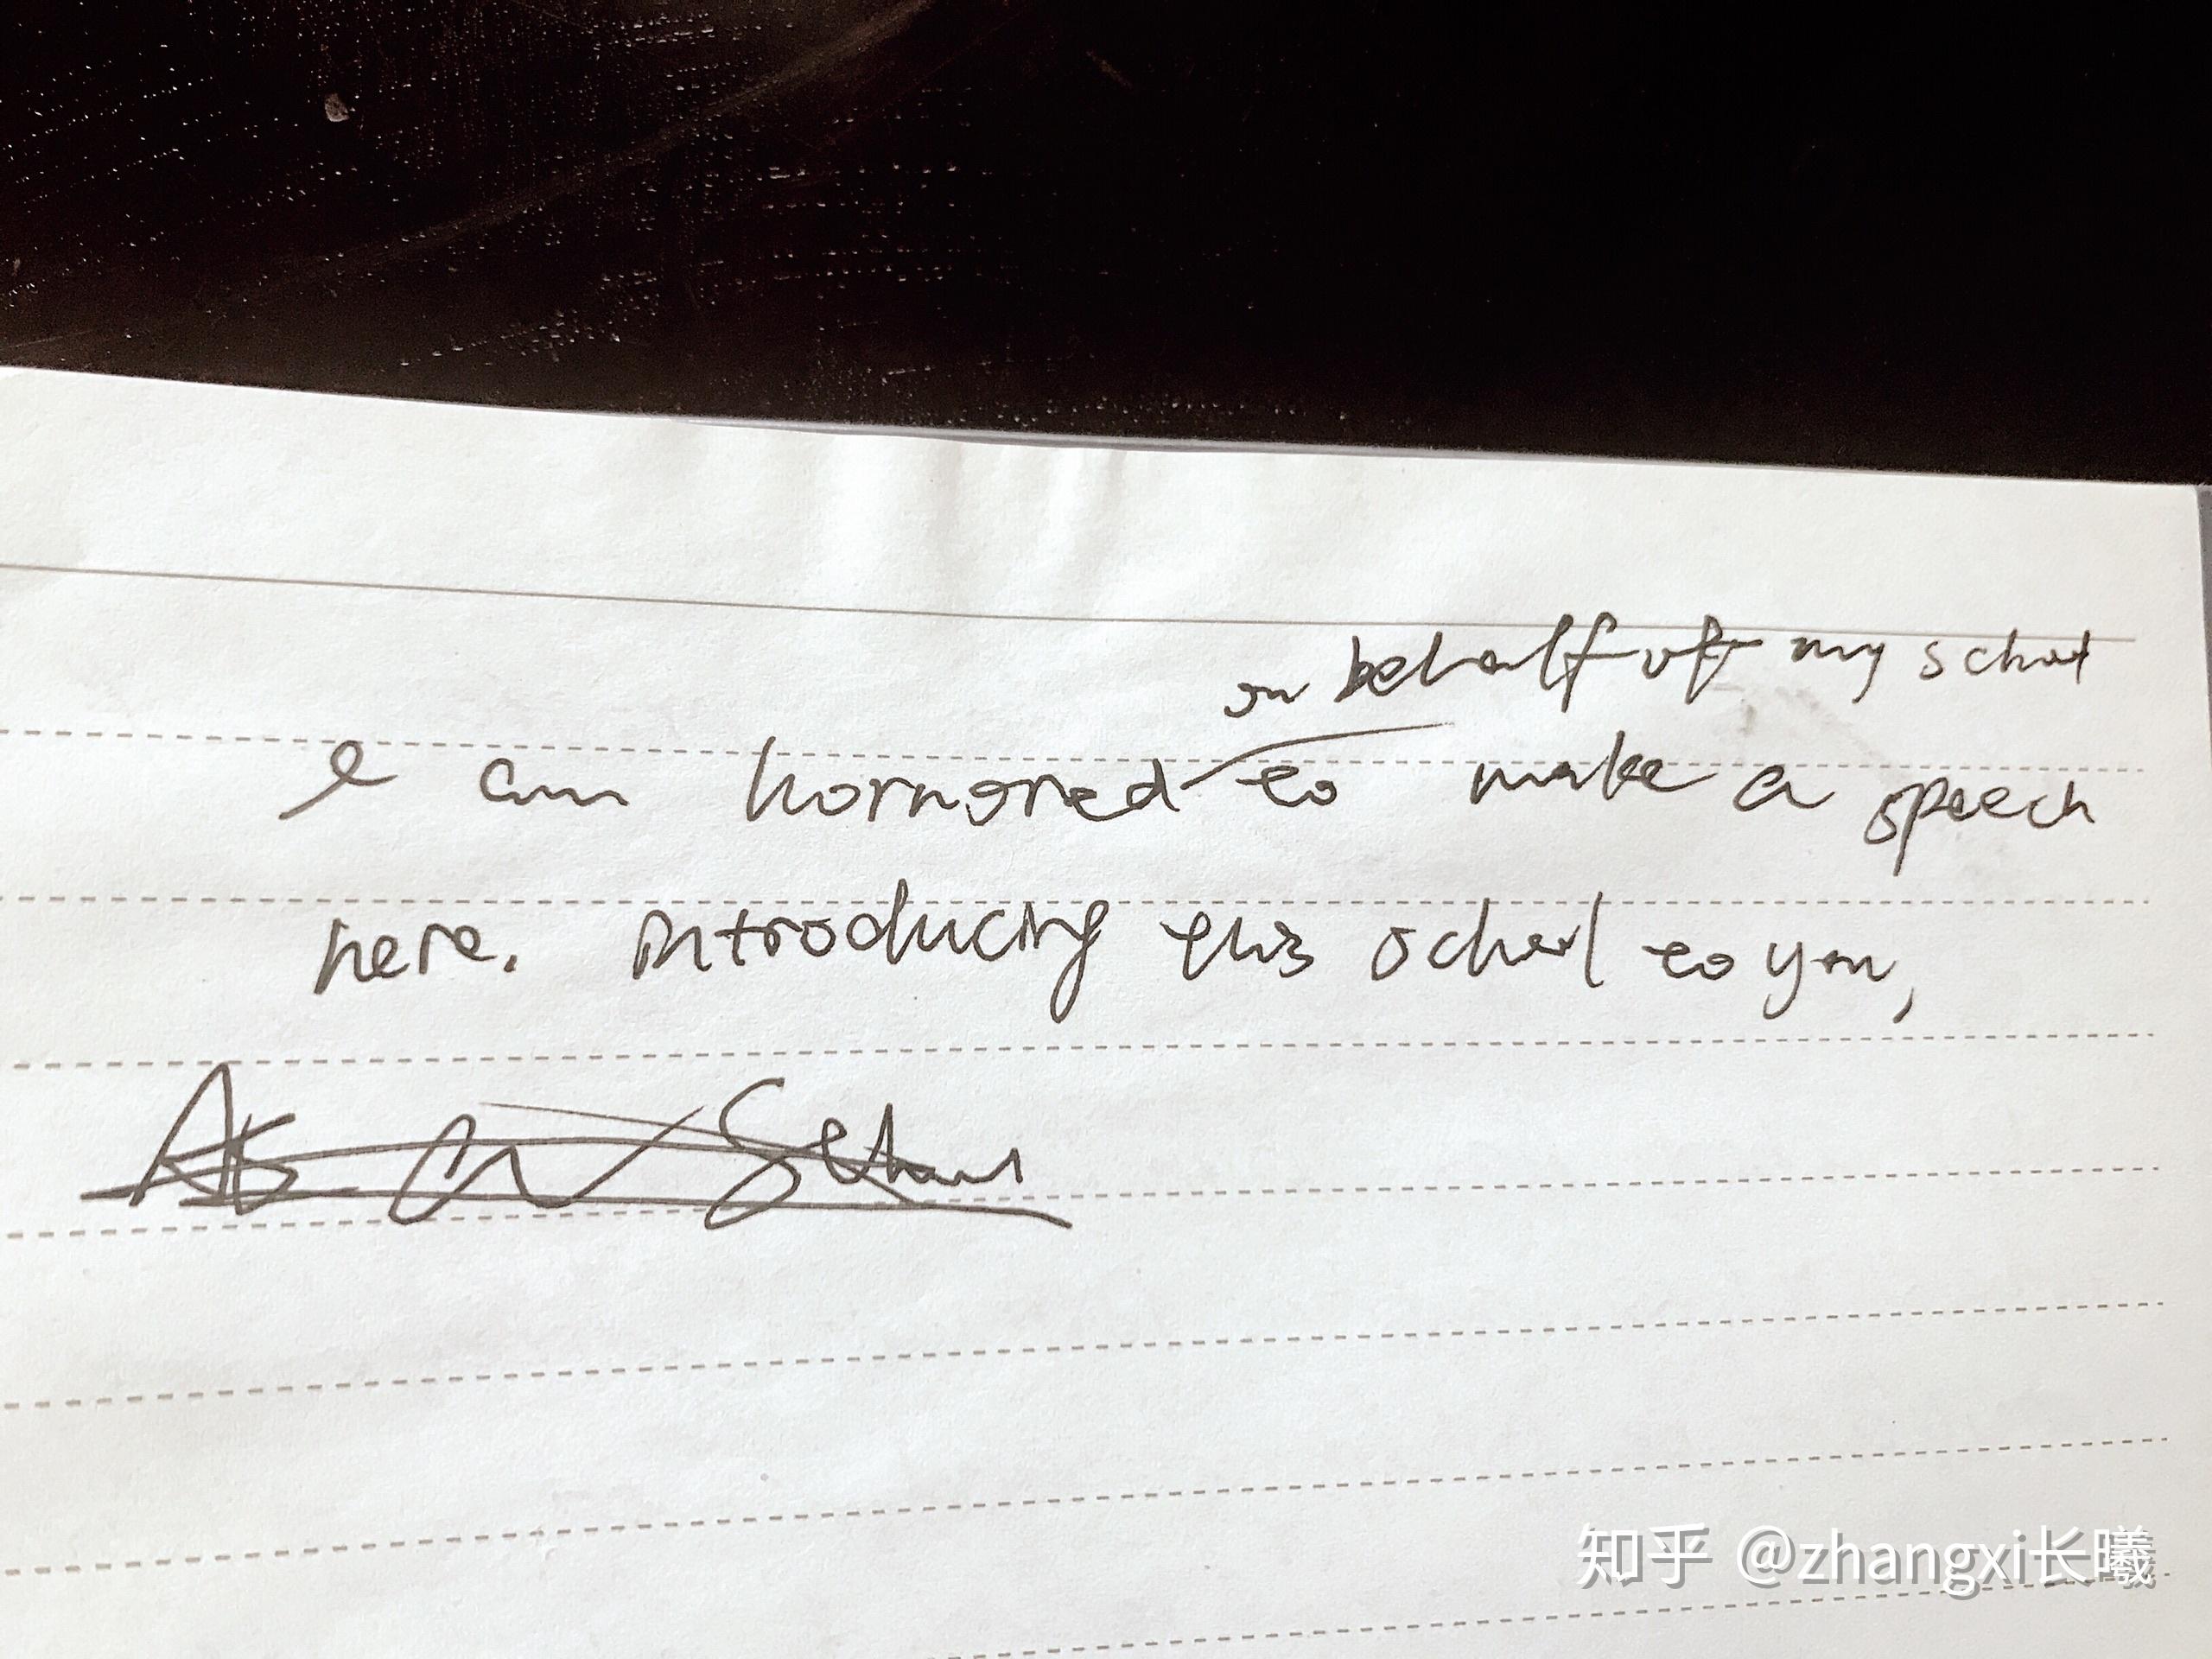 on behalf of my school
I am hornored to make a speech
here. introducing this school to you,
As a
知乎 @zhangxi长曦